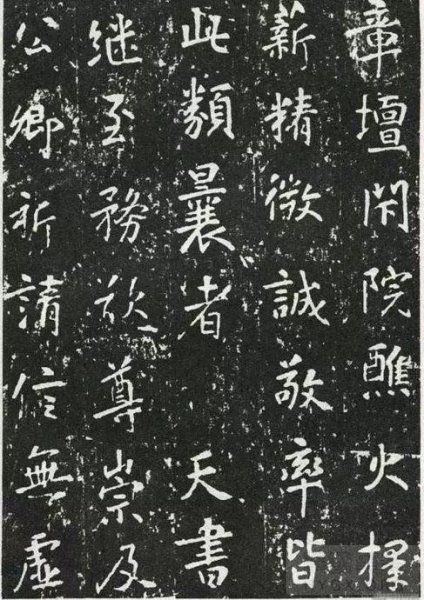 章壇閑院醮火擇
薪精微誠敬率皆
此類曩者天書
継至務於尊崇及
公卿祈請信無虛